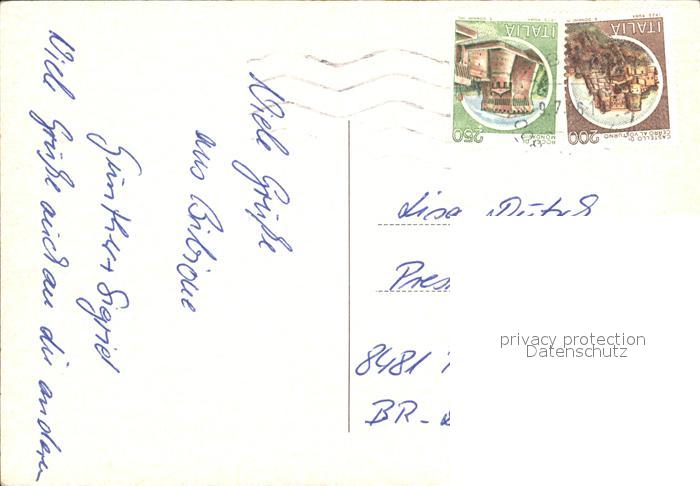 Viele Grüße
aus Bibione
Günther + Sigrid
Viele Grüße auch an die anderen
ITALIA
250
ROCCA DI
MONDAVIO
ITALIA
200
CASTELLO DI
CERRO AL VOLTURNO
Lisa
8481
BR-
privacy protection
Datenschutz